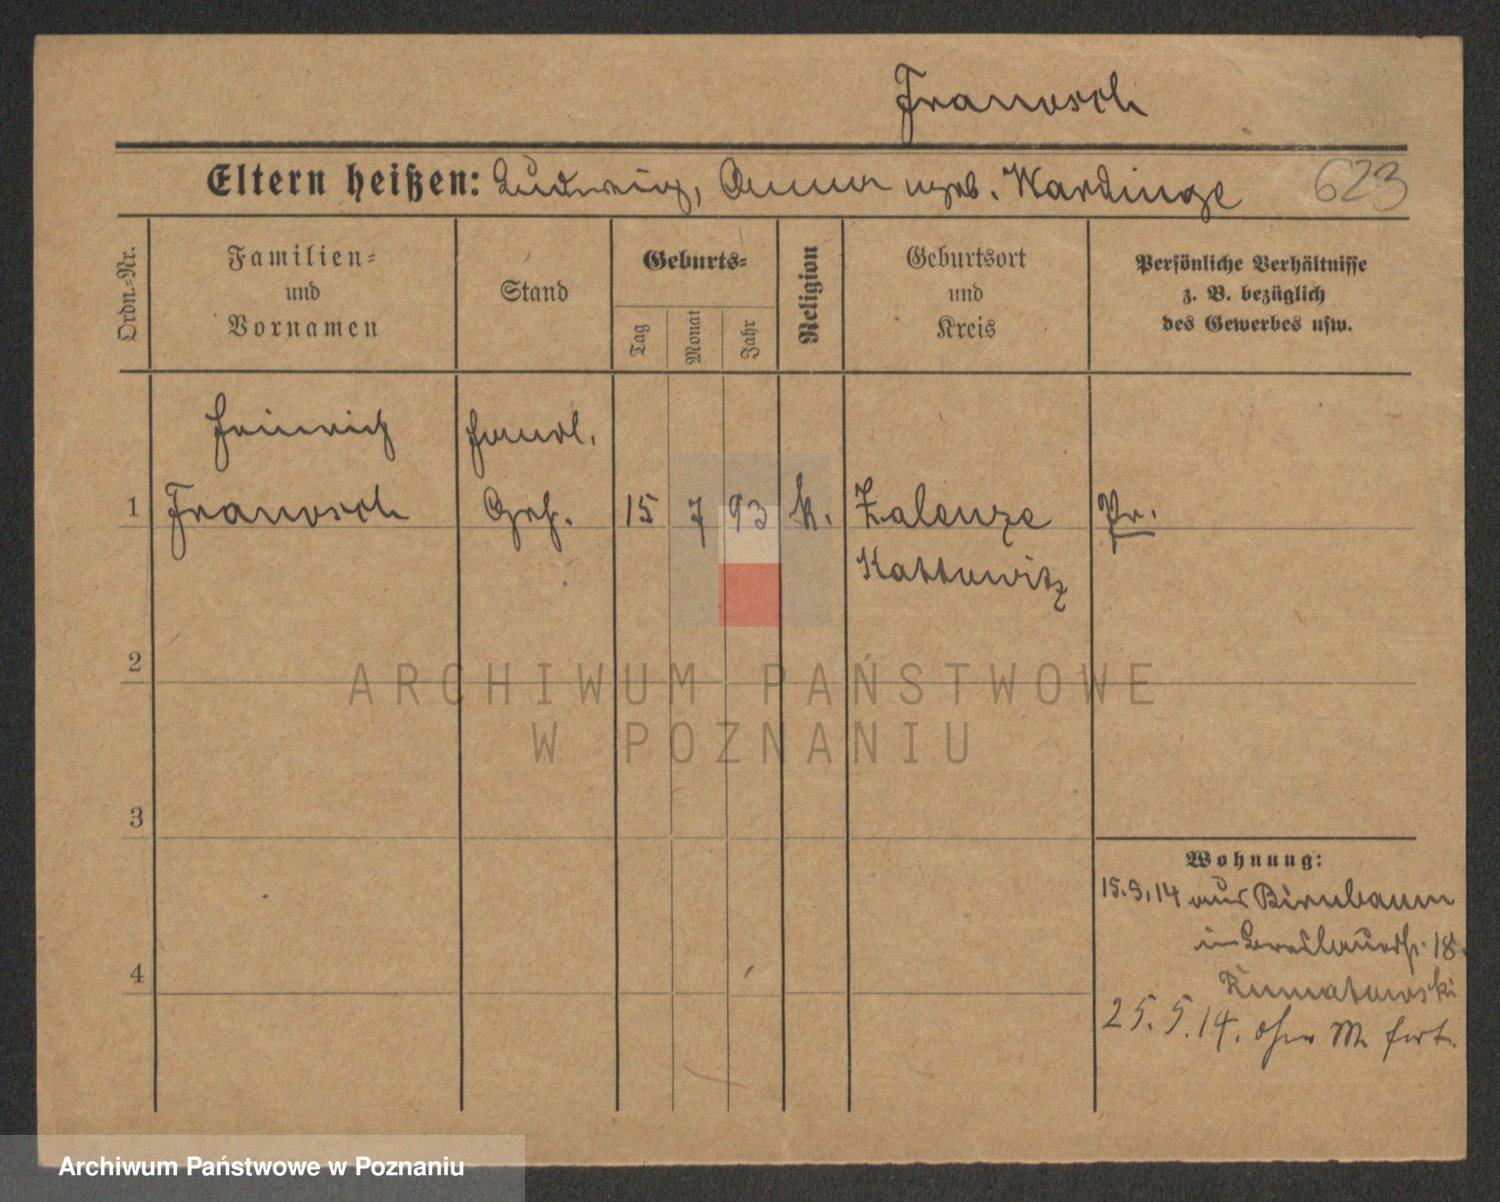 Franosch
Eltern heißen: Ludwig, Anna geb. Wardinge
623
Ordn.-Nr.
Familien-
und
Vornamen
Stand
Geburts-
Tag
Monat
Jahr
Religion
Geburtsort
und
Kreis
Persönliche Verhältnisse
z. B. bezüglich
des Gewerbes usw.
Heinrich
Handl.
1
Franosch
Geh.
15
7
93
k.
Zalenze
Pr.
Kattowitz
2
ARCHIWUM PAŃSTWOWE
W POZNANIU
3
Wohnung:
15.5.14 aus Birnbaum
in Breslauerstr. 18.
4
25.5.14. ohne M fort.
Archiwum Państwowe w Poznaniu